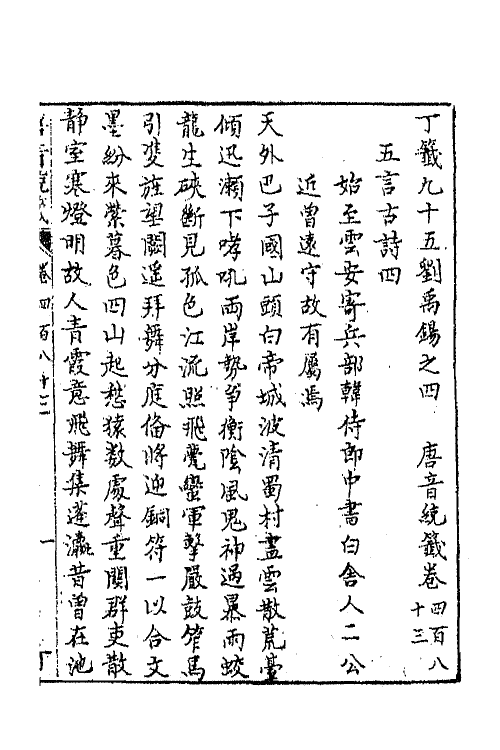 丁籤九十五劉禹錫之四　唐音統籤卷四百八十三
五言古詩四
始至雲安寄兵部韓侍郎中書白舍人二公
近曾遠守故有屬焉
天外巴子國山頭白帝城波清蜀村盡雲散荒臺
傾迅瀨下哮吼兩岸勢爭衡陰風鬼神過暴雨蛟
龍生硤斷見孤色江流照飛甍蠻軍擊嚴鼓笮馬
引雙旌望闕遥拜舞分庭備將迎銅符一以合文
墨紛來縈暮色四山起愁猿數處聲重關群吏散
静室寒燈明故人青霞意飛舞集蓬瀛昔曾在池
唐音統籤 卷四百八十三 一 丁